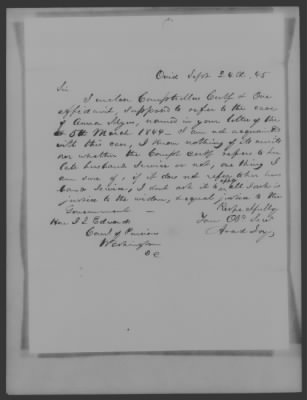 Ovid Sept 24th. 45
Sir
I enclose Comptrollers Certf & One
affidavit, supposed to refer to the case
of Anna Myers, named in your letter of the
5th March 1844 — I am not acquainted
with this case, I know nothing of its merits
nor whether the Compt Certf refers to her
late husband Service or not, one thing I
am sure of, if it does not refer to her hus
bands Service, I dont ask it all I ask is
justice to the widow, & equal justice to the
Government —
Respectfully
Hon J L Edwards
Your Obt Servt
Com of Pensions
Arad Joy
Washington
D C